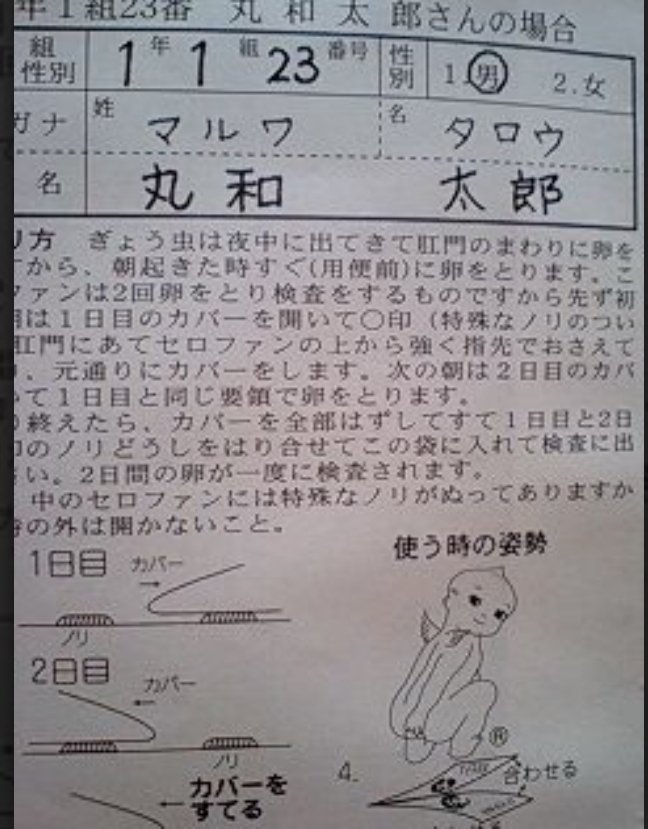 年1組23番 丸 和 太 郎さんの場合
組 1年 1組 23番号 性別 1.男 2.女
性別
ガナ 姓 マルワ 名 タロウ
名 丸和 太郎
り方 ぎょう虫は夜中に出てきて肛門のまわりに卵を
から、朝起きた時すぐ(用便前)に卵をとります。こ
ファンは2回卵をとり検査をするものですから先ず初
は1日目のカバーを開いて〇印(特殊なノリのつい
肛門にあてセロファンの上から強く指先でおさえて
、元通りにカバーをします。次の朝は2日目のカバ
て1日目と同じ要領で卵をとります。
終えたら、カバーを全部はずしてすて1日目と2日
印のノリどうしをはり合せてこの袋に入れて検査に出
い。2日間の卵が一度に検査されます。
中のセロファンには特殊なノリがぬってありますか
時の外は開かないこと。
1日目 カバー
ノリ
2日目
カバー
ノリ
カバーを
すてる
使う時の姿勢
Ⓡ
4. 合わせる